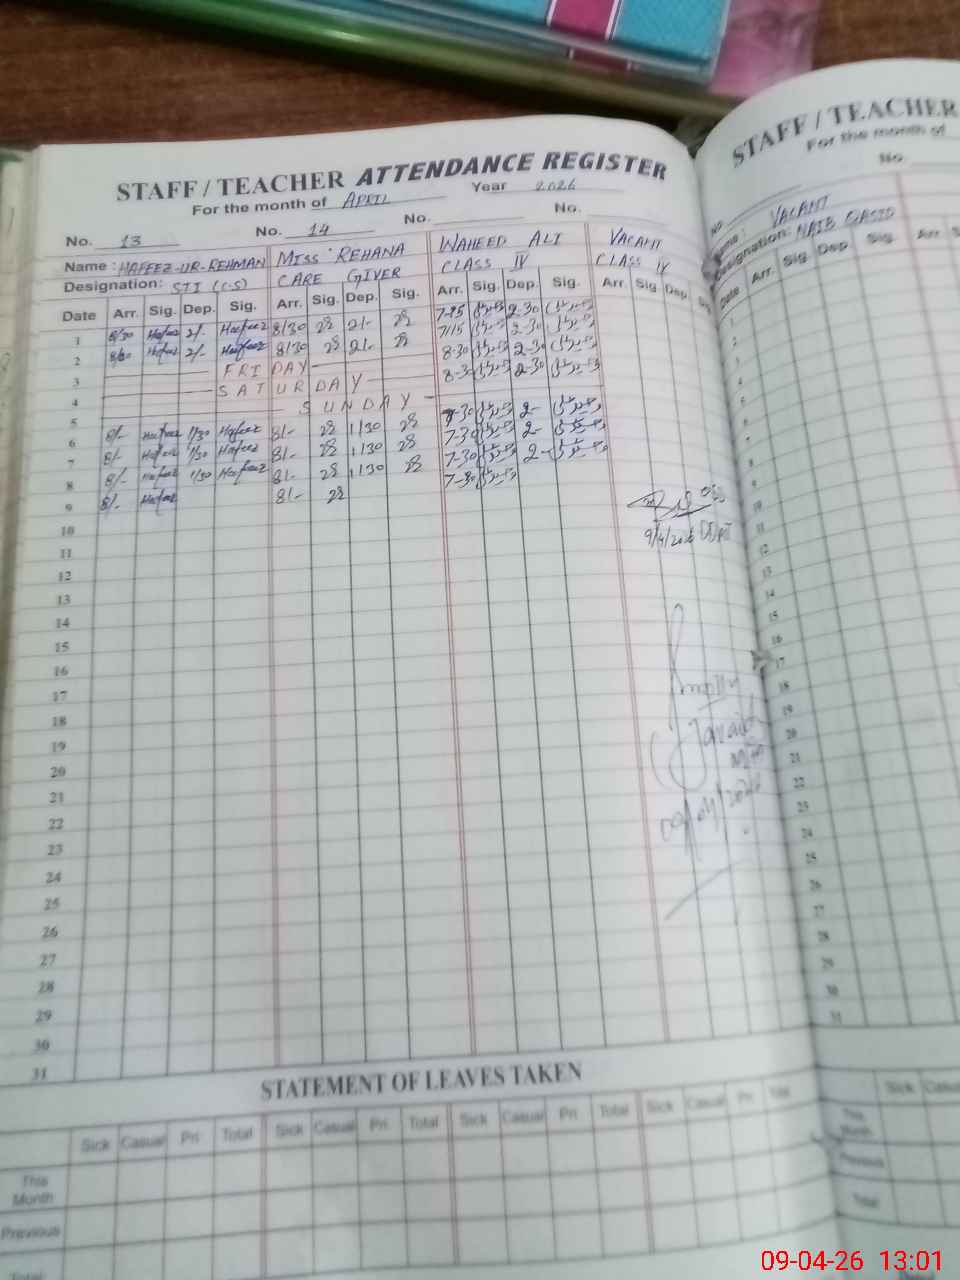 STAFF / TEACHER ATTENDANCE REGISTER
For the month of APRIL Year 2026
No. 13 No. 14 No. No.
Name : HAFEEZ-UR-REHMAN MISS REHANA WAHEED ALI VACANT
Designation: STI (C.S) CARE GIVER CLASS IV CLASS IV
Date Arr. Sig. Dep. Sig. Arr. Sig. Dep. Sig. Arr. Sig. Dep. Sig. Arr. Sig. Dep. Sig.
1 8/30 Hafeez 2/- Hafeez 8/30 2/- 7-15 2-30
2 8/30 Hafeez 2/- Hafeez 8/30 2/- 7/15 2-30
3 FRIDAY 8-30 2-30
4 SATURDAY 8-30 2-30
5 SUNDAY
6 8/- Hafeez 1/30 Hafeez 8/- 1/30 7-30 2-
7 8/- Hafeez 1/30 Hafeez 8/- 1/30 7-30 2-
8 8/- Hafeez 1/30 Hafeez 8/- 1/30 7-30 2-
9 8/- Hafeez 8/- 7-30
10
9/4/2026
11
12
13
14
15
16
17
Javaid
18
19
09/04/2026
20
21
22
23
24
25
26
27
28
29
30
31
STATEMENT OF LEAVES TAKEN
Sick Casual Pri Total Sick Casual Pri Total Sick Casual Pri Total Sick Casual Pri Total
This Month
Previous
Total
STAFF / TEACHER
For the month of
No.
No
Name : VACANT
Designation: NAIB QASID
Date Arr. Sig. Dep Sig. Arr.
1
2
3
4
5
6
7
8
9
10
11
12
13
14
15
16
17
18
19
20
21
22
23
24
25
26
27
28
29
30
31
Sick Casual
This Month
Previous
Total
09-04-26 13:01